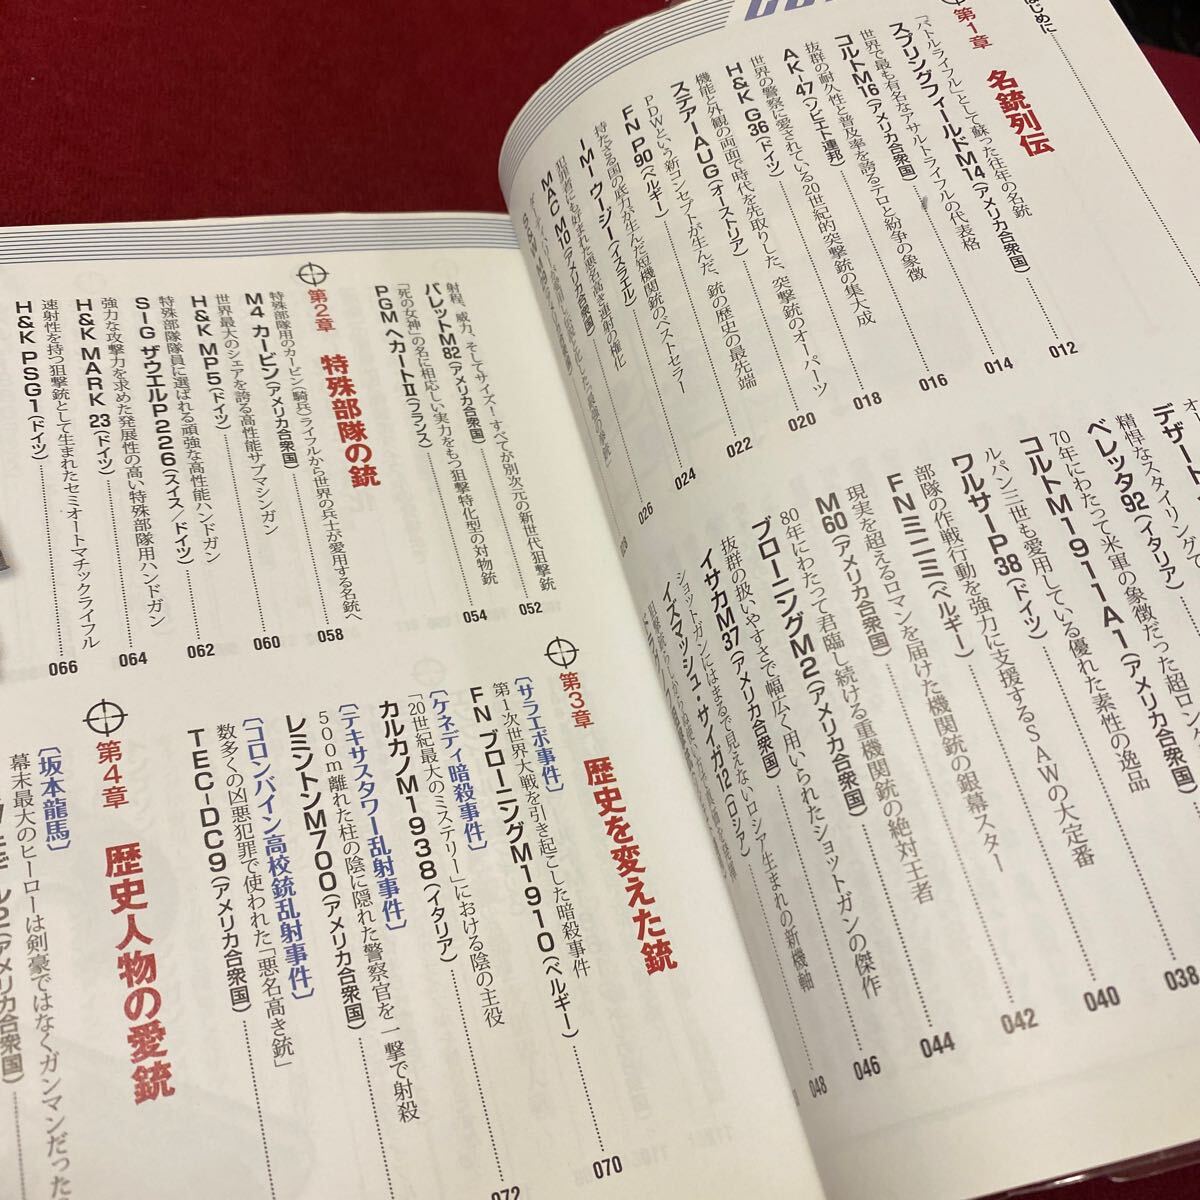 はじめに
第1章 名銃列伝
「バトルライフル」として蘇った往年の名銃
スプリングフィールドM14(アメリカ合衆国) 012
世界で最も有名なアサルトライフルの代表格
コルトM16(アメリカ合衆国) 014
抜群の耐久性と普及率を誇るテロと紛争の象徴
AK-47(ソビエト連邦) 016
世界の警察に愛されている20世紀的突撃銃の集大成
H&K G36(ドイツ) 018
機能と外観の両面で時代を先取りした、突撃銃のオーパーツ
ステアーAUG(オーストリア) 020
PDWという新コンセプトが生んだ、銃の歴史の最先端
FN P90(ベルギー) 022
持たざる国の底力が生んだ短機関銃のベストセラー
IMI ウージー(イスラエル) 024
犯罪者にも好まれた悪名高き速射の権化
MAC M10(アメリカ合衆国) 026
デザート
精悍なスタイリングで
ベレッタ92(イタリア) 038
70年にわたって米軍の象徴だった超ロン
コルトM1911A1(アメリカ合衆国) 040
ルパン三世も愛用している優れた素性の逸品
ワルサーP38(ドイツ) 042
部隊の作戦行動を強力に支援するSAWの大定番
FNミニミ(ベルギー) 044
現実を超えるロマンを届けた機関銃の銀幕スター
M60(アメリカ合衆国) 046
80年にわたって君臨し続ける重機関銃の絶対王者
ブローニングM2(アメリカ合衆国) 048
抜群の扱いやすさで幅広く用いられたショットガンの傑作
イサカM37(アメリカ合衆国)
ショットガンにはまるで見えないロシア生まれの新機軸
イズマッシュ・サイガ12(ロシア)
射程、威力、そしてサイズ!すべてが別次元の新世代狙撃銃
バレットM82(アメリカ合衆国) 052
「死の女神」の名に相応しい実力をもつ狙撃特化型の対物銃
PGM ヘカートII(フランス) 054
第2章 特殊部隊の銃
特殊部隊用のカービン(騎兵)ライフルから世界の兵士が愛用する名銃へ
M4 カービン(アメリカ合衆国) 058
世界最大のシェアを誇る高性能サブマシンガン
H&K MP5(ドイツ) 060
特殊部隊隊員に選ばれる頑強な高性能ハンドガン
SIG ザウエルP226(スイス/ドイツ) 062
強力な攻撃力を求めた発展性の高い特殊部隊用ハンドガン
H&K MARK 23(ドイツ) 064
速射性を持つ狙撃銃として生まれたセミオートマチックライフル
H&K PSG1(ドイツ) 066
第3章 歴史を変えた銃
[サラエボ事件]
第1次世界大戦を引き起こした暗殺事件
FN ブローニングM1910(ベルギー) 070
[ケネディ暗殺事件]
「20世紀最大のミステリー」における陰の主役
カルカノM1938(イタリア) 072
[テキサスタワー乱射事件]
500m離れた柱の陰に隠れた警察官を一撃で射殺
レミントンM700(アメリカ合衆国)
[コロンバイン高校銃乱射事件]
数多くの凶悪犯罪で使われた「悪名高き銃」
TEC-DC9(アメリカ合衆国)
第4章 歴史人物の愛銃
[坂本龍馬]
幕末最大のヒーローは剣豪ではなくガンマンだった